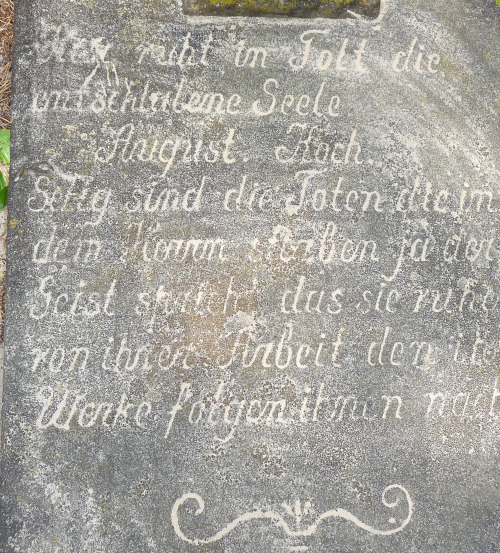 Hier ruht in Tott die
entschlafene Seele
August. Koch.
Selig sind die Toten die im
dem Herrn sterben ja der
Geist spricht das sie ruhe
ren ihrer Arbeit den ite
Werke folgen ihnen nach